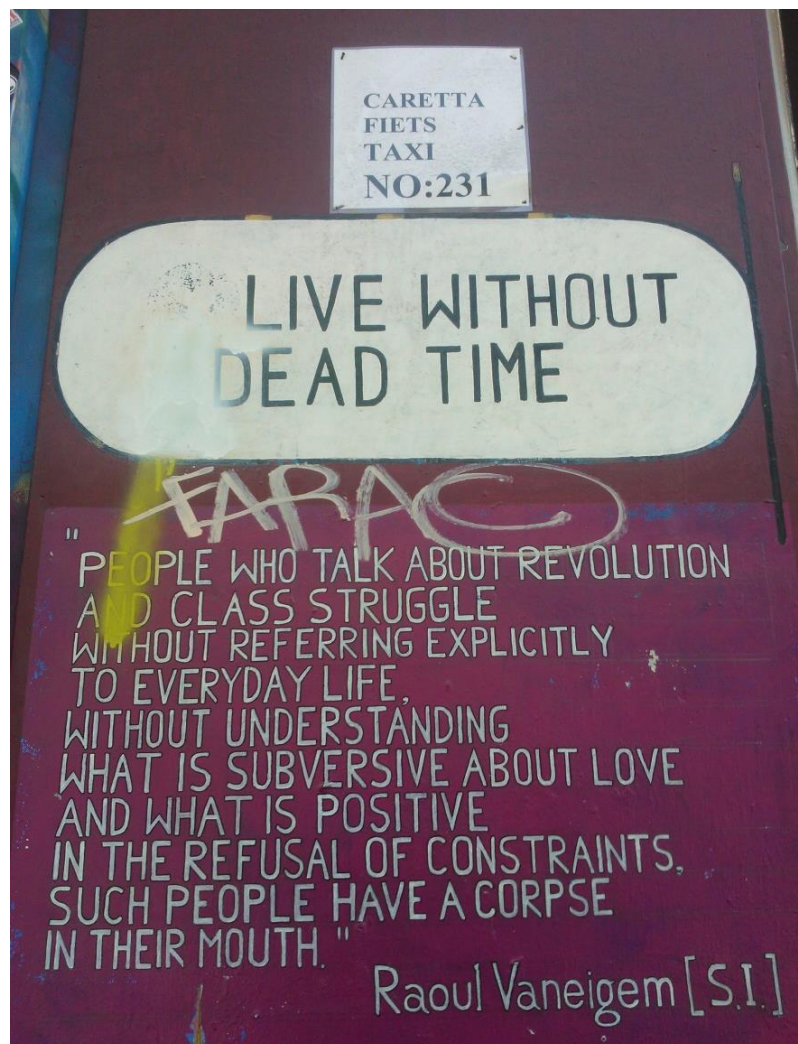 CARETTA
FIETS
TAXI
NO:231
LIVE WITHOUT
DEAD TIME
FARAO
"
PEOPLE WHO TALK ABOUT REVOLUTION
AND CLASS STRUGGLE
WITHOUT REFERRING EXPLICITLY
TO EVERYDAY LIFE,
WITHOUT UNDERSTANDING
WHAT IS SUBVERSIVE ABOUT LOVE
AND WHAT IS POSITIVE
IN THE REFUSAL OF CONSTRAINTS,
SUCH PEOPLE HAVE A CORPSE
IN THEIR MOUTH."
Raoul Vaneigem [S.I.]